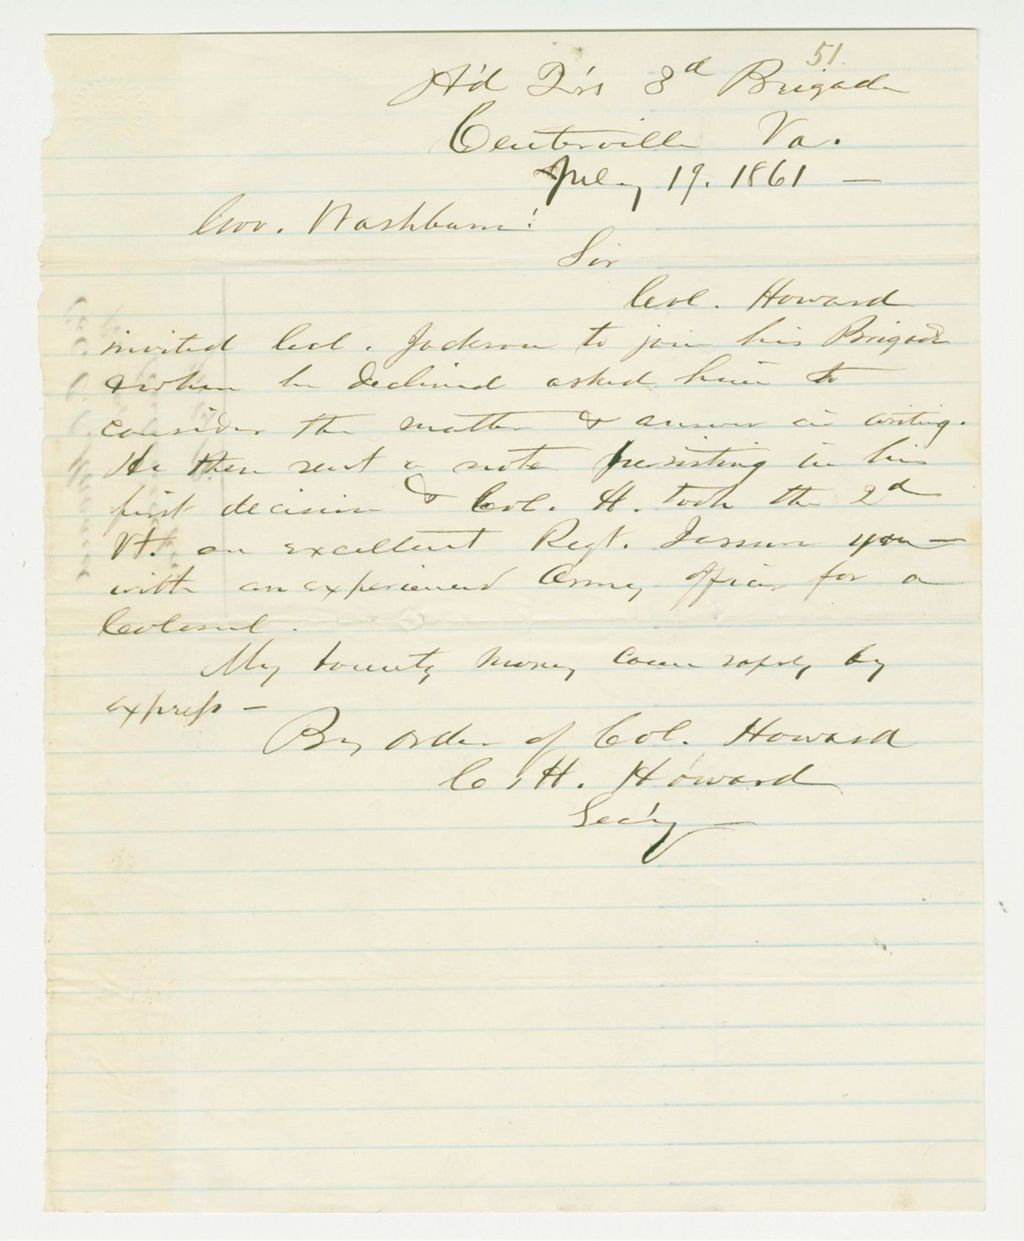 51.
H'd Qrs 3d Brigade
Centerville Va.
July 19. 1861 —
Gov. Washburn:
Sir
Col. Howard
invited Col. Jackson to join his Brigade
& when he declined asked him to
consider the matter & answer in writing.
He then sent a note persisting in his
first decision & Col. H. took the 2d
Vt. an excellent Regt. I assure you —
with an experienced Army officer for a
Colonel.
My bounty money came safely by
express —
By order of Col. Howard
C. H. Howard
Sec'y